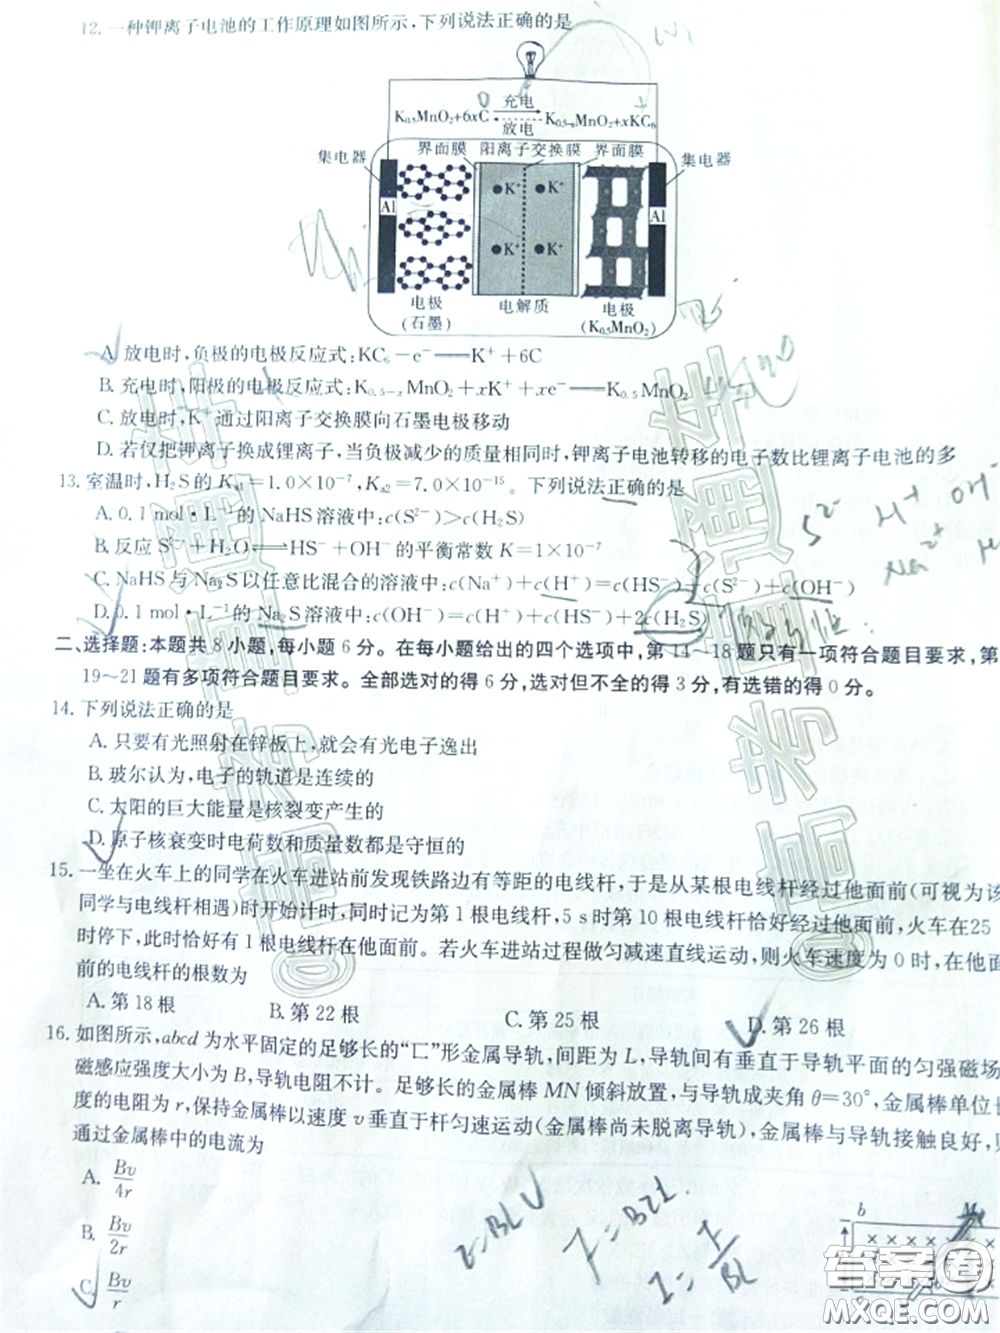 12. 一种钾离子电池的工作原理如图所示,下列说法正确的是
K₀.₅MnO₂+6xC 充电 K₀.₅₋ₓMnO₂+xKC₆
放电
界面膜 阳离子交换膜 界面膜
集电器 集电器
K⁺ K⁺
Al Al
K⁺ K⁺
电极 电解质 电极
(石墨) (K₀.₅MnO₂)
A. 放电时,负极的电极反应式:KC₆-e⁻══K⁺+6C
B. 充电时,阳极的电极反应式:K₀.₅₋ₓMnO₂+xK⁺+xe⁻══K₀.₅MnO₂
C. 放电时,K⁺通过阳离子交换膜向石墨电极移动
D. 若仅把钾离子换成锂离子,当负极减少的质量相同时,钾离子电池转移的电子数比锂离子电池的多
13. 室温时,H₂S的Kₐ₁=1.0×10⁻⁷,Kₐ₂=7.0×10⁻¹⁵。下列说法正确的是
A. 0.1 mol·L⁻¹的NaHS溶液中:c(S²⁻)>c(H₂S)
B. 反应S²⁻+H₂O⇌HS⁻+OH⁻的平衡常数K=1×10⁻⁷
C. NaHS与Na₂S以任意比混合的溶液中:c(Na⁺)+c(H⁺)=c(HS⁻)+c(S²⁻)+c(OH⁻)
D. 0.1 mol·L⁻¹的Na₂S溶液中:c(OH⁻)=c(H⁺)+c(HS⁻)+2c(H₂S)
S²⁻ H⁺ OH⁻
二、选择题:本题共8小题,每小题6分。在每小题给出的四个选项中,第14~18题只有一项符合题目要求,第
19~21题有多项符合题目要求。全部选对的得6分,选对但不全的得3分,有选错的得0分。
14. 下列说法正确的是
A. 只要有光照射在锌板上,就会有光电子逸出
B. 玻尔认为,电子的轨道是连续的
C. 太阳的巨大能量是核裂变产生的
D. 原子核衰变时电荷数和质量数都是守恒的
15. 一坐在火车上的同学在火车进站前发现铁路边有等距的电线杆,于是从某根电线杆经过他面前(可视为该
同学与电线杆相遇)时开始计时,同时记为第1根电线杆,5 s时第10根电线杆恰好经过他面前,火车在25
时停下,此时恰好有1根电线杆在他面前。若火车进站过程做匀减速直线运动,则火车速度为0时,在他面
前的电线杆的根数为
A. 第18根 B. 第22根 C. 第25根 D. 第26根
16. 如图所示,abcd为水平固定的足够长的“匚”形金属导轨,间距为L,导轨间有垂直于导轨平面的匀强磁场
磁感应强度大小为B,导轨电阻不计。足够长的金属棒MN倾斜放置,与导轨成夹角θ=30°,金属棒单位长
度的电阻为r,保持金属棒以速度v垂直于杆匀速运动(金属棒尚未脱离导轨),金属棒与导轨接触良好,则
通过金属棒中的电流为
A. Bv/4r
B. Bv/2r
C. Bv/r
b
答案圈
MXQE.COM